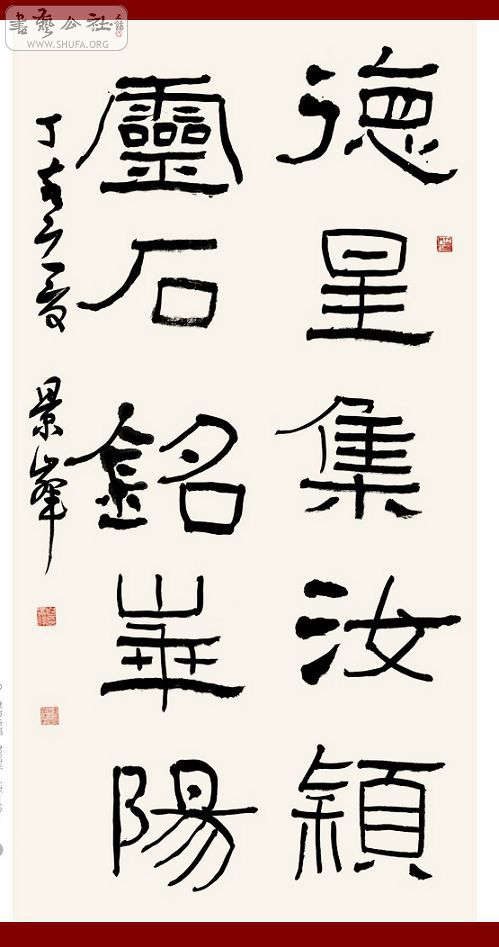 書藝公社
WWW.SHUFA.ORG
德星集汝潁
靈石銘崋陽
丁亥之夏 景峯